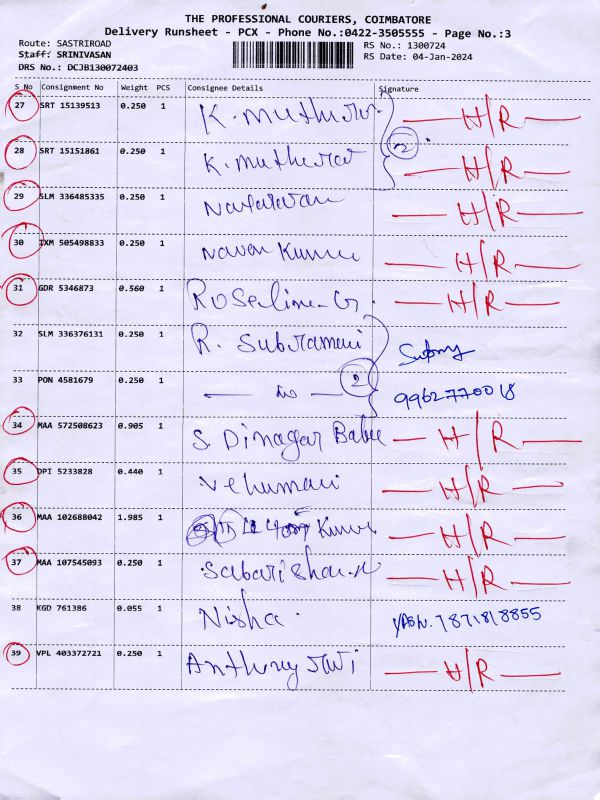 THE PROFESSIONAL COURIERS, COIMBATORE
Delivery Runsheet - PCX - Phone No.:0422-3505555 - Page No.:3
Route: SASTRIROAD
Staff: SRINIVASAN
DRS No.: DCJB130072403
RS No.: 1300724
RS Date: 04-Jan-2024
S No Consignment No Weight PCS Consignee Details Signature
27 SRT 15139513 0.250 1 K. Muthu H/R
28 SRT 15151861 0.250 1 K. Muthu 2 H/R
29 SLM 336485335 0.250 1 H/R
30 IXM 505498833 0.250 1 Naven Kumar H/R
31 GDR 5346873 0.560 1 Roseline G. H/R
32 SLM 336376131 0.250 1 R. Subramani
33 PON 4581679 0.250 1 2 9962770018
34 MAA 572508623 0.905 1 S. Dinagar Babu H/R
35 DPI 5233828 0.440 1 Velumani H/R
36 MAA 102688042 1.985 1 Kumar H/R
37 MAA 107545093 0.250 1 Sabarishan.N H/R
38 KGD 761386 0.055 1 Nisha. 7871818855
39 VPL 403372721 0.250 1 H/R